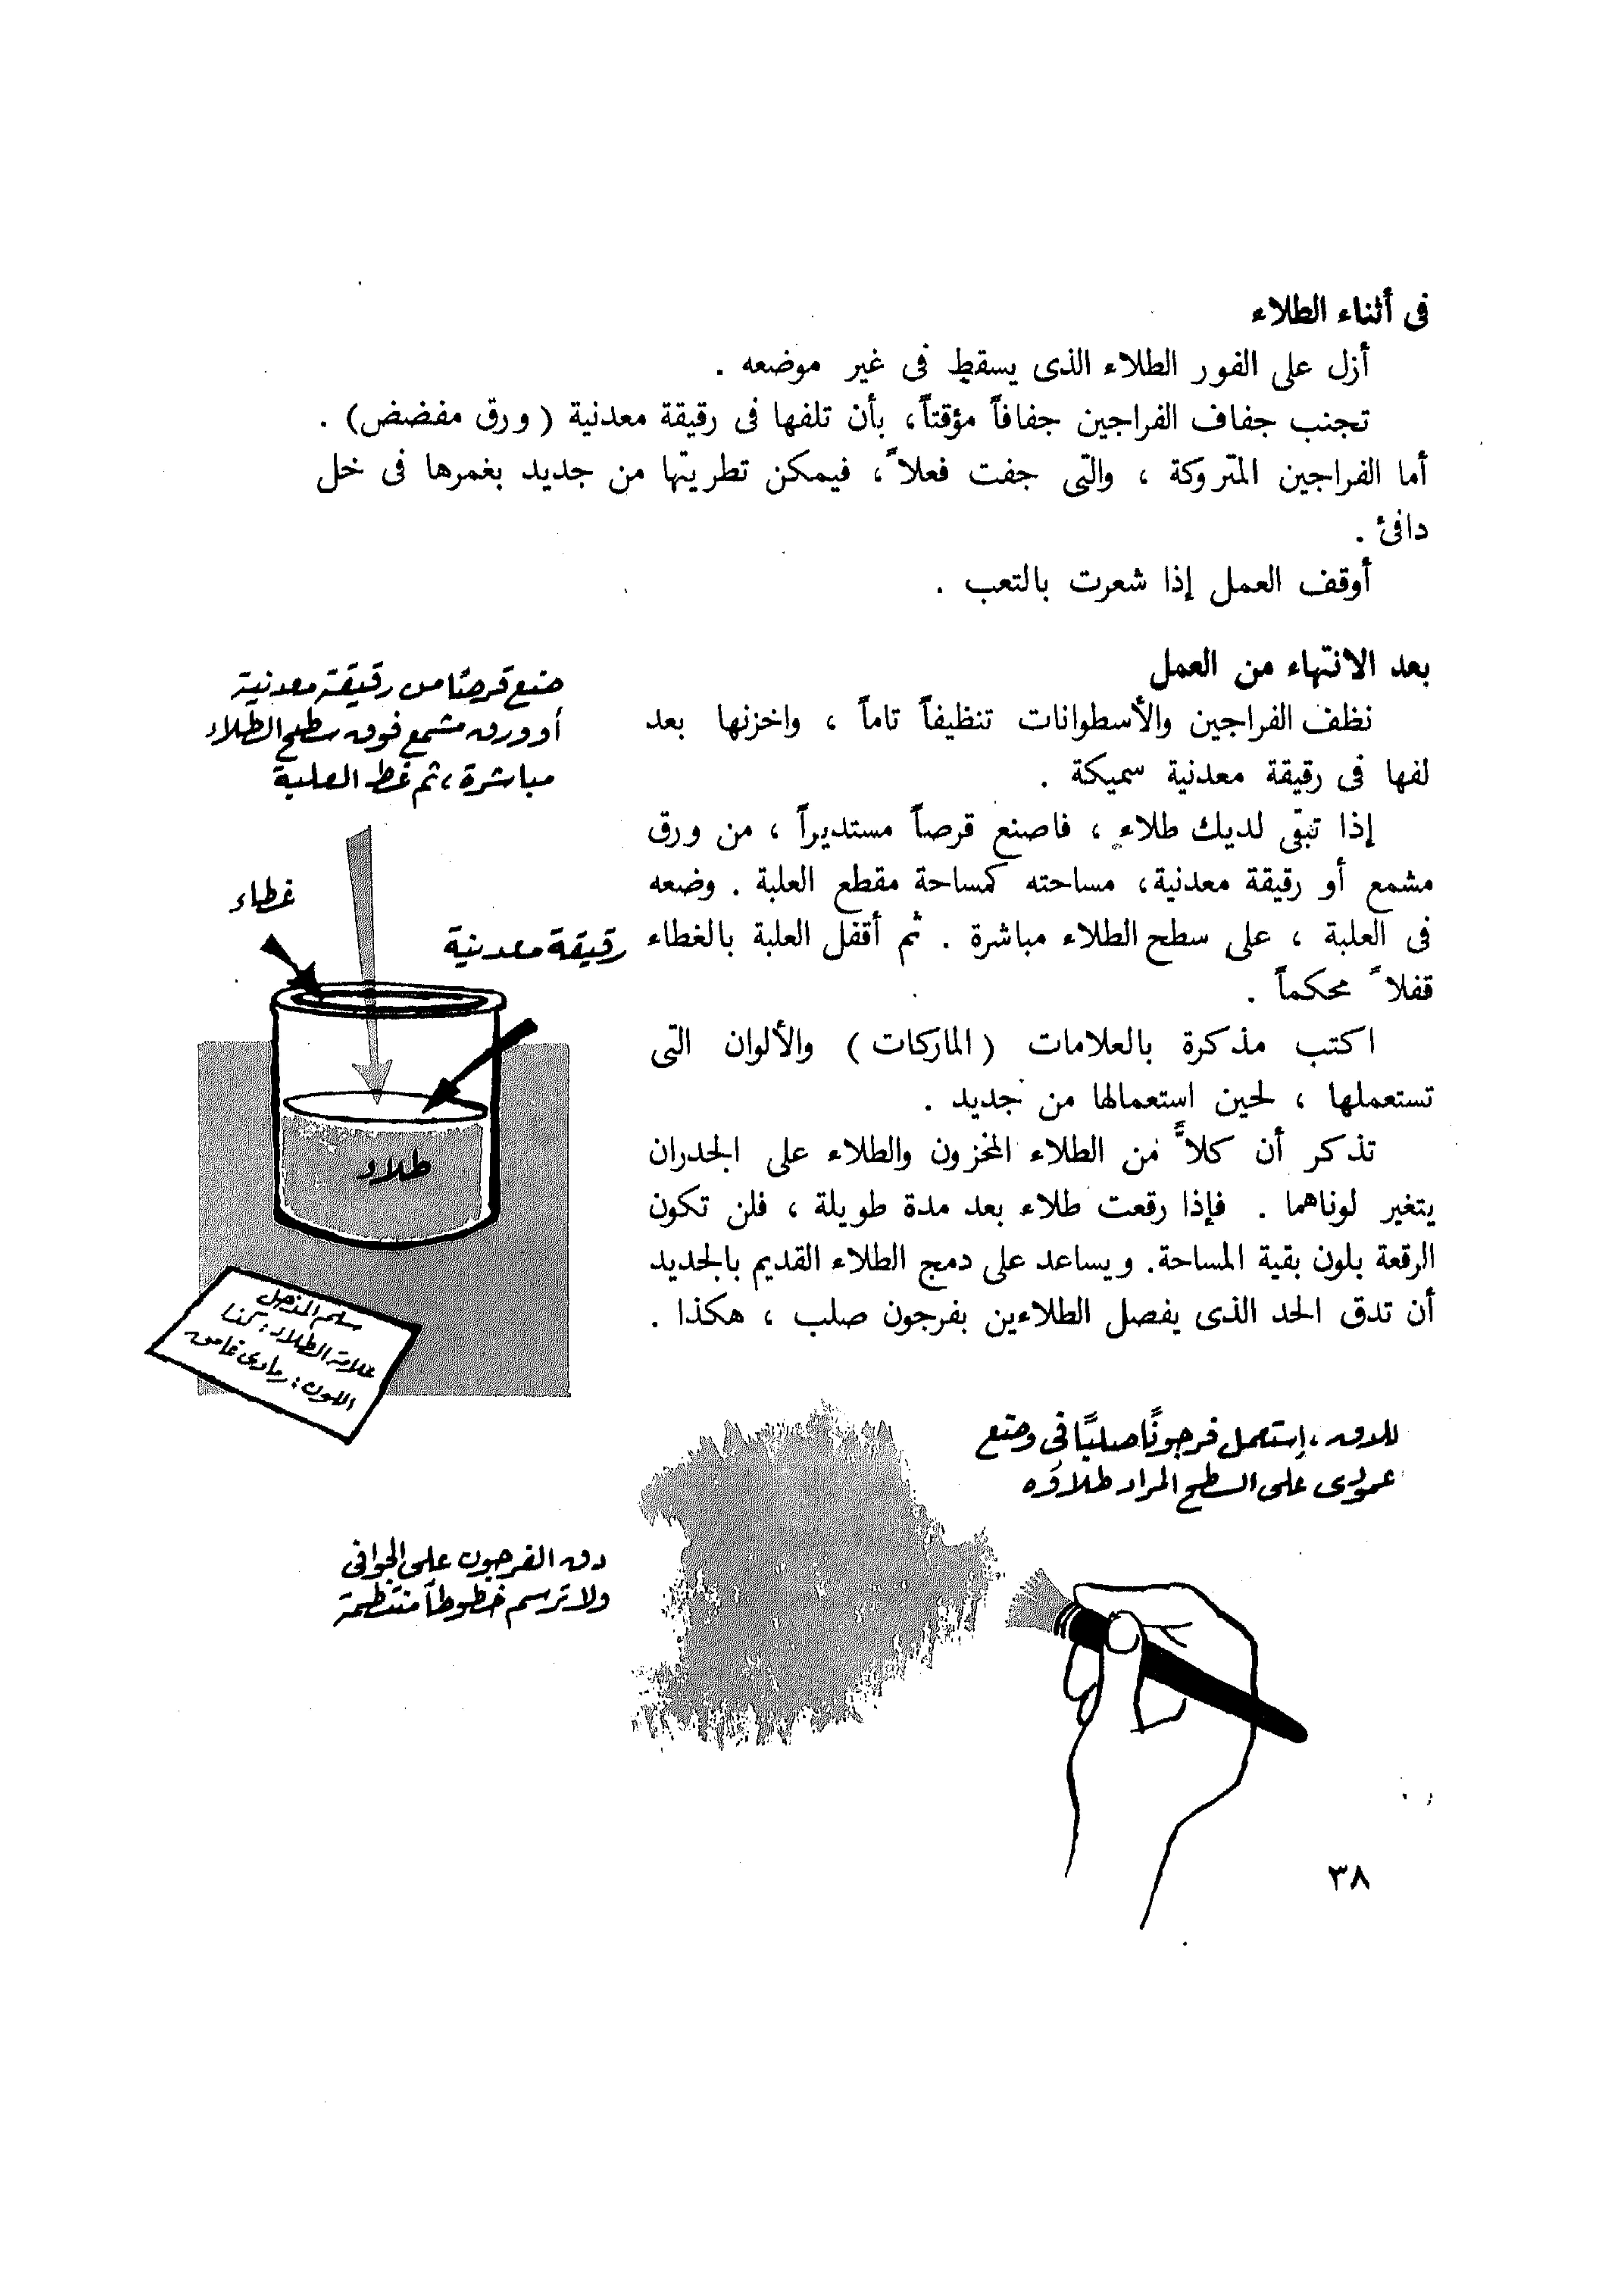 فى أثناء الطلاء
أزل على الفور الطلاء الذى يسقط فى غير موضعه .
تجنب جفاف الفراجين جفافاً مؤقتاً، بأن تلفها فى رقيقة معدنية ( ورق مفضض) .
أما الفراجين المتروكة ، والتى جفت فعلاً ، فيمكن تطريتها من جديد بغمرها فى خل
دافئ .
أوقف العمل إذا شعرت بالتعب .
بعد الانتهاء من العمل
نظف الفراجين والأسطوانات تنظيفاً تاماً ، واخزنها بعد
لفها فى رقيقة معدنية سميكة .
إذا تبقى لديك طلاء ، فاصنع قرصاً مستديراً ، من ورق
مشمع أو رقيقة معدنية، مساحته كمساحة مقطع العلبة . وضعه
فى العلبة ، على سطح الطلاء مباشرة . ثم أقفل العلبة بالغطاء
قفلاً محكماً .
اكتب مذكرة بالعلامات ( الماركات ) والألوان التى
تستعملها ، لحين استعمالها من جديد .
تذكر أن كلاًّ من الطلاء المخزون والطلاء على الجدران
يتغير لوناهما . فإذا رقعت طلاء بعد مدة طويلة ، فلن تكون
الرقعة بلون بقية المساحة. ويساعد على دمج الطلاء القديم بالجديد
أن تدق الحد الذى يفصل الطلاءين بفرجون صلب ، هكذا .
ضع قرصًا من رقيقة معدنية
أو ورق مشمع فوق سطح الطلاء
مباشرة ، ثم غط العلبة
غطاء
رقيقة معدنية
طلاء
سلم المنزل
علامة الطلاء : كذا
اللون : رمادى غامق
للدق ، إستعمل فرجونًا صلبًا فى وضع
عمودى على السطح المراد طلاؤه
دق الفرجون على الحوافى
ولا ترسم خطوطاً منتظمة
٣٨